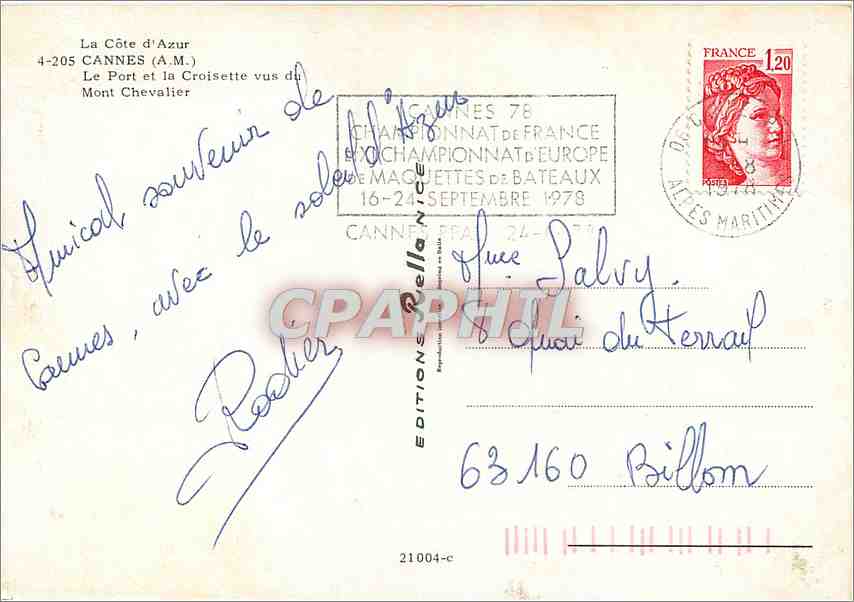 La Côte d'Azur
4-205 CANNES (A.M.)
Le Port et la Croisette vus du
Mont Chevalier
Amical souvenir de
Cannes, avec le soleil d'Azur
Rodier
EDITIONS Rella NICE
CANNES 78
CHAMPIONNAT DE FRANCE
CHAMPIONNAT D'EUROPE
DE MAQUETTES DE BATEAUX
16-24 SEPTEMBRE 1978
CANNES
FRANCE 1,20
POSTES
06
1978
ALPES MARITIMES
Mme Salvy.
8 Quai du Terrail
63160 Billom
CPAPHIL
21004-c